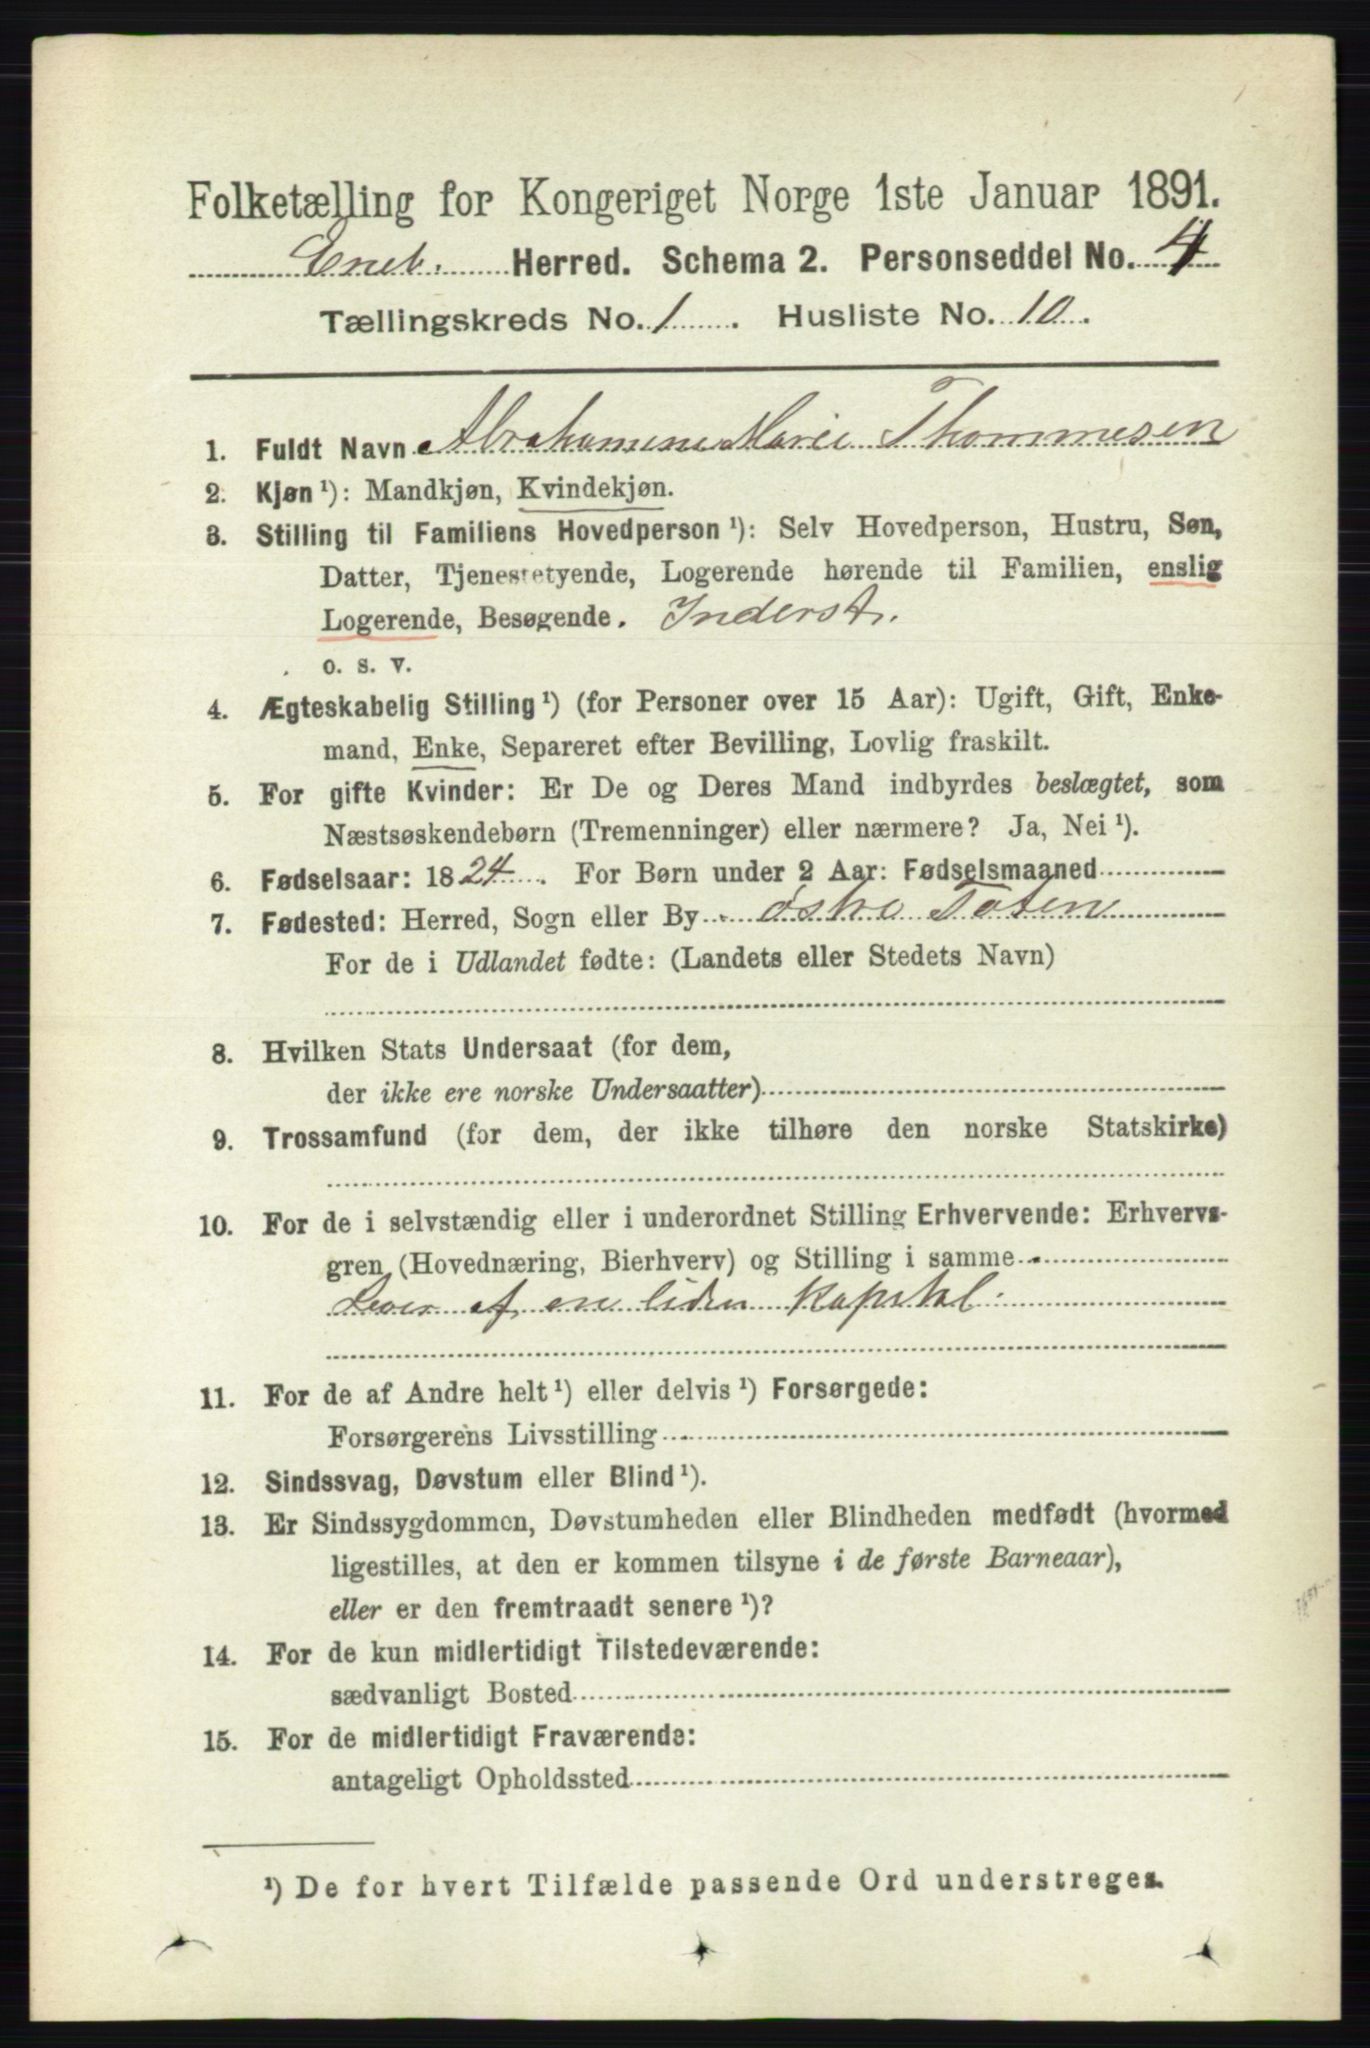 Folketælling for Kongeriget Norge 1ste Januar 1891.
Eneb. Herred. Schema 2. Personseddel No. 4
Tællingskreds No. 1. Husliste No. 10.
1. Fuldt Navn Abrahamine Marie Thommesen
2. Kjøn ¹): Mandkjøn, Kvindekjøn.
3. Stilling til Familiens Hovedperson ¹): Selv Hovedperson, Hustru, Søn,
Datter, Tjenestetyende, Logerende hørende til Familien, enslig
Logerende, Besøgende. Inderst.
o. s. v.
4. Ægteskabelig Stilling ¹) (for Personer over 15 Aar): Ugift, Gift, Enke-
mand, Enke, Separeret efter Bevilling, Lovlig fraskilt.
5. For gifte Kvinder: Er De og Deres Mand indbyrdes beslægtet, som
Næstsøskendebørn (Tremenninger) eller nærmere? Ja, Nei ¹).
6. Fødselsaar: 1824. For Børn under 2 Aar: Fødselsmaaned
7. Fødested: Herred, Sogn eller By østre Toten
For de i Udlandet fødte: (Landets eller Stedets Navn)
8. Hvilken Stats Undersaat (for dem,
der ikke ere norske Undersaatter)
9. Trossamfund (for dem, der ikke tilhøre den norske Statskirke)
10. For de i selvstændig eller i underordnet Stilling Erhvervende: Erhvervs-
gren (Hovednæring, Bierhverv) og Stilling i samme
Lever af en liden Kapital.
11. For de af Andre helt ¹) eller delvis ¹) Forsørgede:
Forsørgerens Livsstilling
12. Sindssvag, Døvstum eller Blind ¹).
13. Er Sindssygdommen, Døvstumheden eller Blindheden medfødt (hvormed
ligestilles, at den er kommen tilsyne i de første Barneaar),
eller er den fremtraadt senere ¹)?
14. For de kun midlertidigt Tilstedeværende:
sædvanligt Bosted
15. For de midlertidigt Fraværende:
antageligt Opholdssted
¹) De for hvert Tilfælde passende Ord understreges.